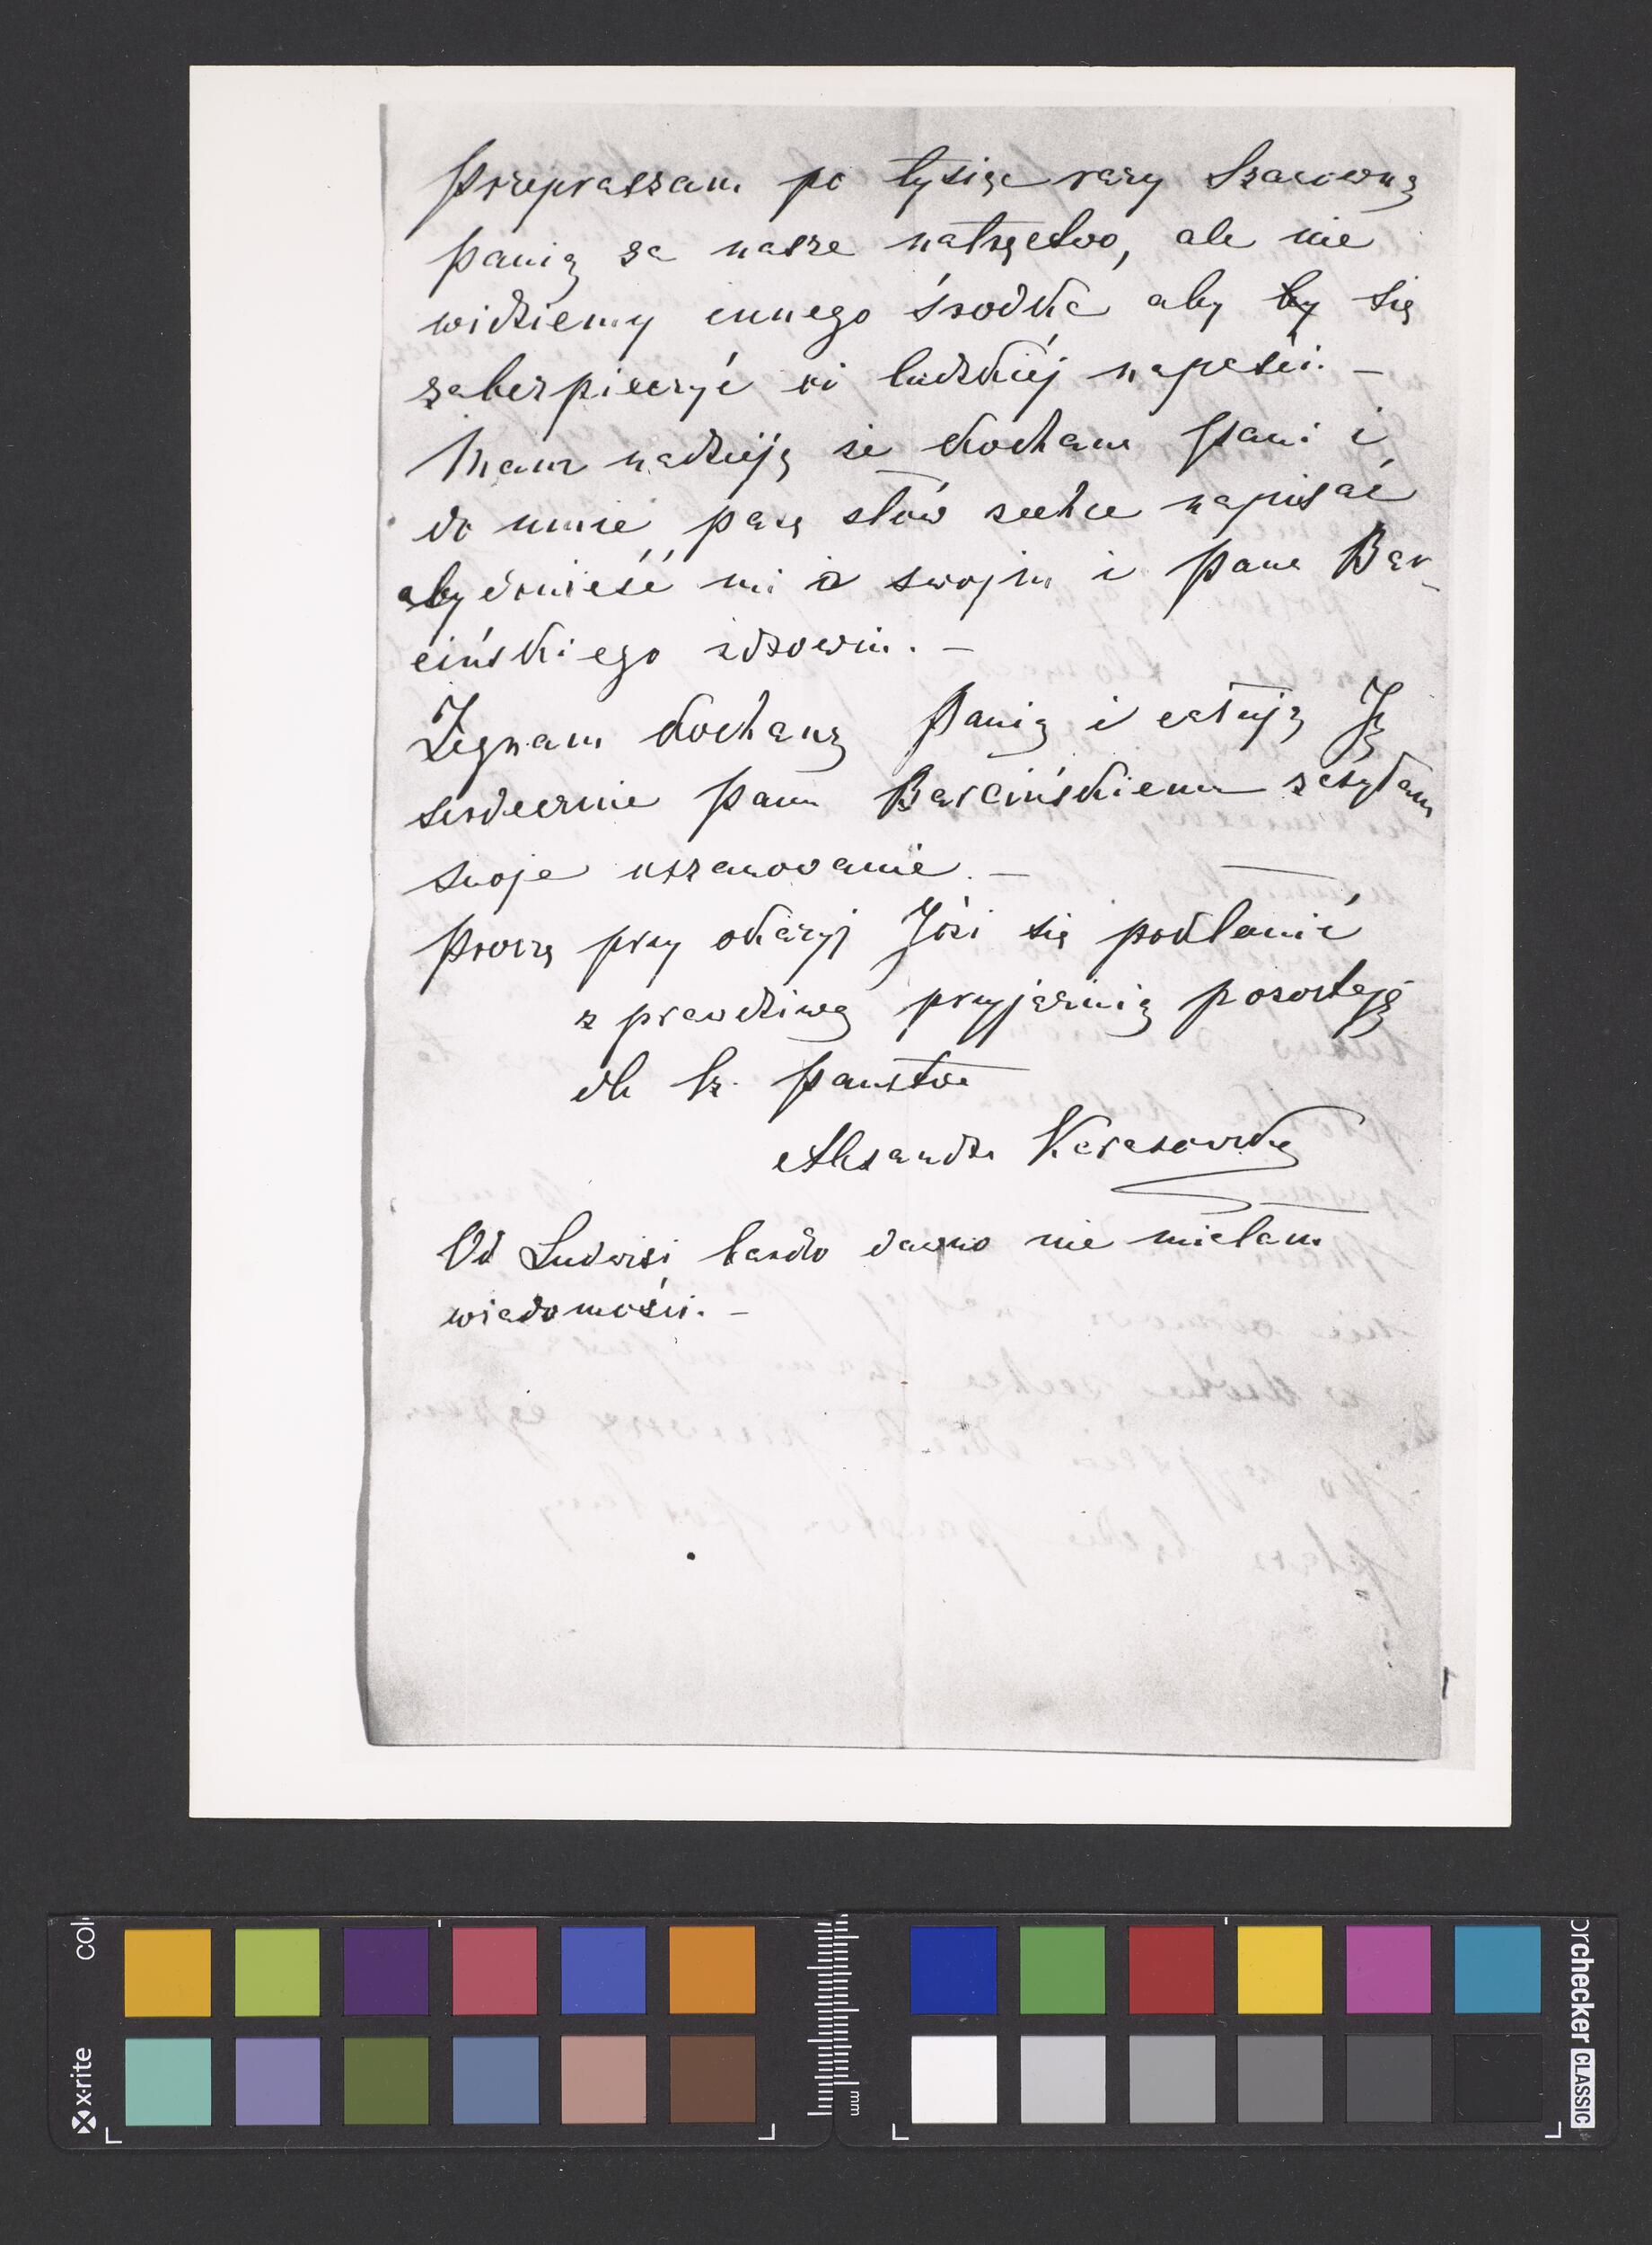 Przepraszam po tysiąc razy Szanowną
Panią za nasze natręctwo, ale nie
widziemy innego środka aby by się
zabezpieczyć od ludzkiéj napaści. –
Mam nadzieję że kochana Pani i
do mnie parę słów zechce napisać
aby donieść mi o swojm i Pana Bar-
cińskiego zdrowiu. –
Żegnam kochaną Panią i całuję Ją
serdecznie Panu Barcińskiemu zasyłam
swoje uszanowanie. –
Proszę przy okazyj Józi się pokłonić
z prawdziwą przyjaźnią pozostaję
dla Sz. Państwa
Aleksandra Karasowska
Od Ludwisi bardzo dawno nie miełam
wiadomości. –
col
x·rite
mm
orchecker CLASSIC